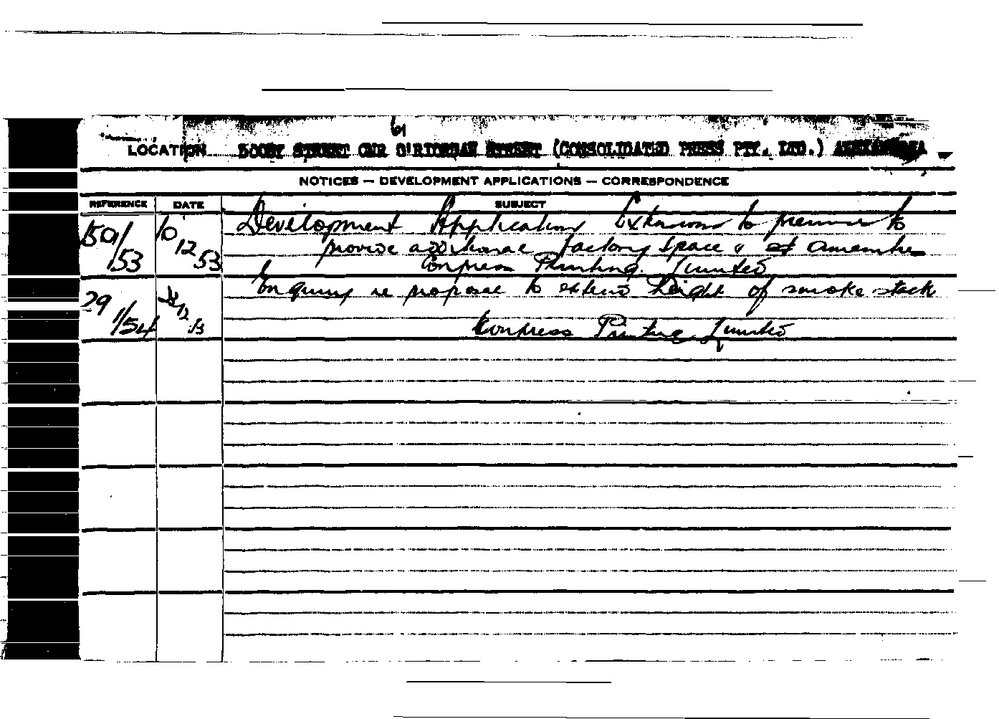 61
LOCATION DOODY STREET CNR O'RIORDAN STREET (CONSOLIDATED PRESS PTY. LTD.) ALEXANDRIA
NOTICES — DEVELOPMENT APPLICATIONS — CORRESPONDENCE
REFERENCE DATE SUBJECT
Development Application Extensions to premises to
provide additional factory space & amenities
Conpress Printing Limited
150/53 10/12/53
Enquiry re proposal to extend height of smoke stack
29/1/54
Conpress Printing Limited